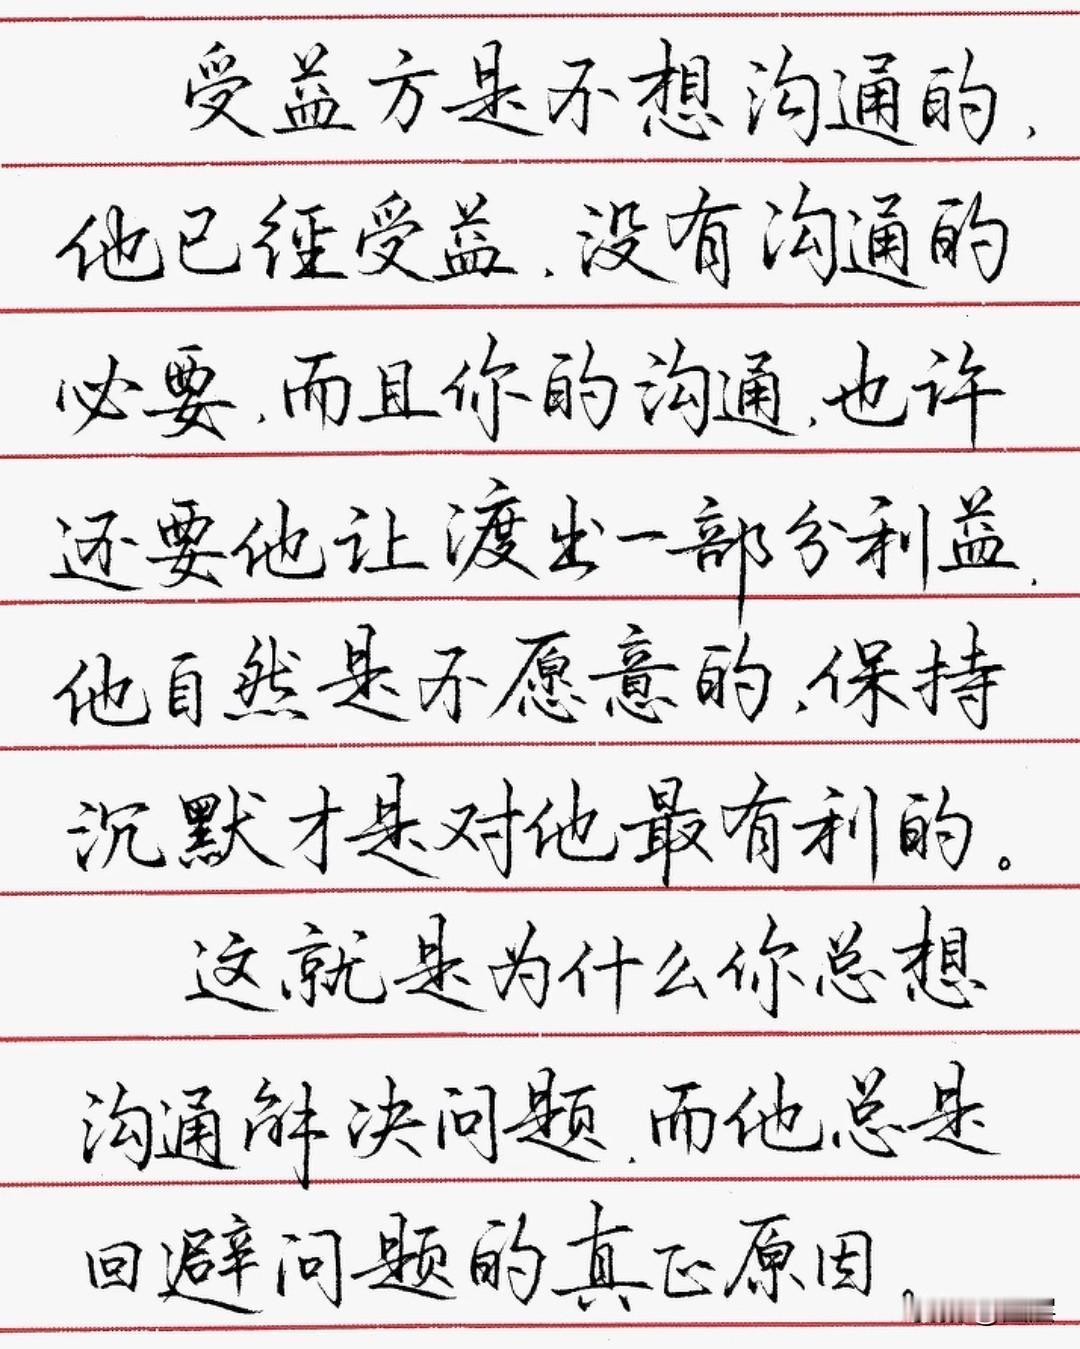 受益方是不想沟通的，
他已经受益，没有沟通的
必要，而且你的沟通，也许
还要他让渡出一部分利益，
他自然是不愿意的，保持
沉默才是对他最有利的。
这就是为什么你总想
沟通解决问题，而他总是
回避问题的真正原因